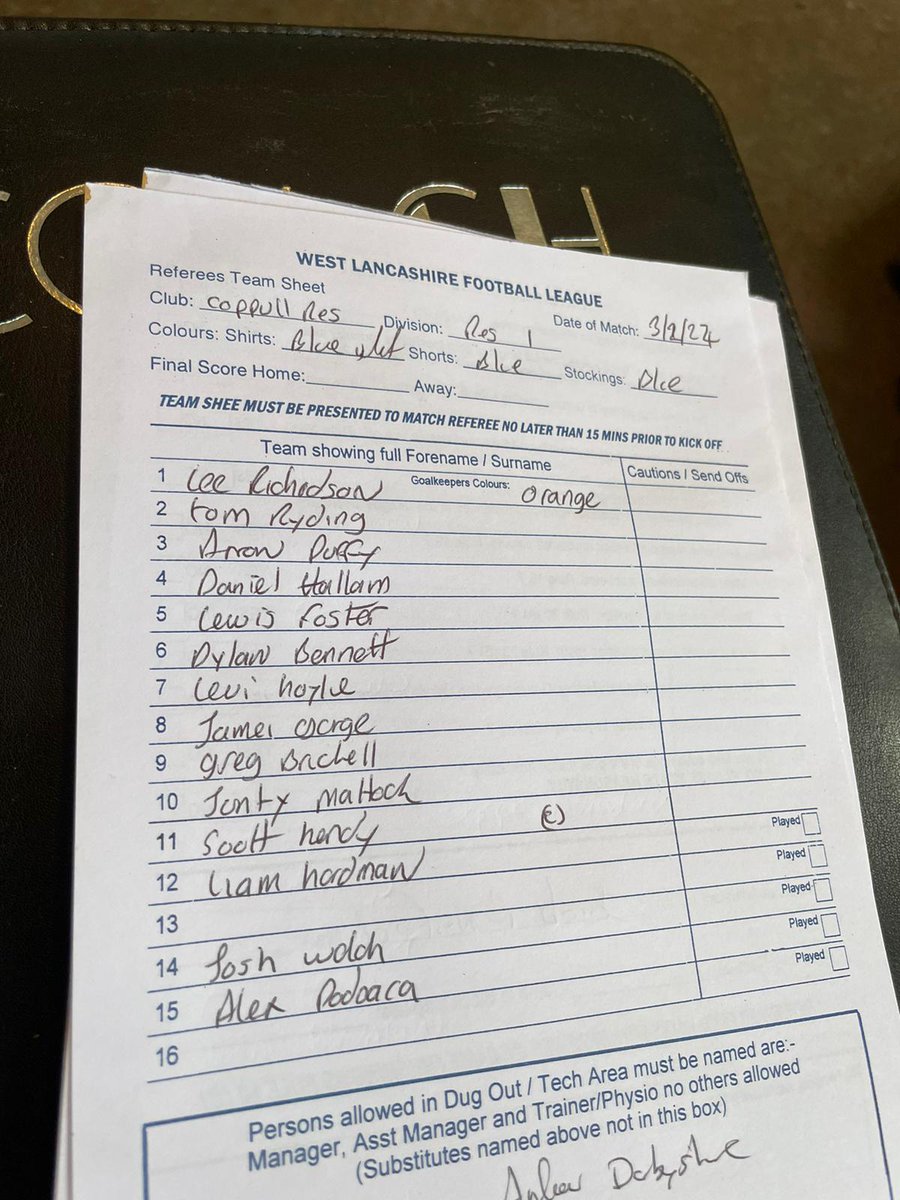 COACH
WEST LANCASHIRE FOOTBALL LEAGUE
Referees Team Sheet
Club: Coppull Res Division: Res 1 Date of Match: 3/2/24
Colours: Shirts: Blue Shorts: Blue Stockings: Blue
Final Score Home: Away:
TEAM SHEE MUST BE PRESENTED TO MATCH REFEREE NO LATER THAN 15 MINS PRIOR TO KICK OFF
Team showing full Forename / Surname Cautions / Send Offs
1 Lee Richardson Goalkeepers Colours: Orange
2 Tom Ryding
3 Arron Duffy
4 Daniel Hallam
5 Lewis Foster
6 Dylan Bennett
7 Levi hoyle
8 James George
9 Greg
10 Jonty Mattock
11 Scott hendy (C)
12 Liam hardman Played
13 Played
14 Josh Walch Played
15 Alex Podoaca Played
16 Played
Persons allowed in Dug Out / Tech Area must be named are:-
Manager, Asst Manager and Trainer/Physio no others allowed
(Substitutes named above not in this box)